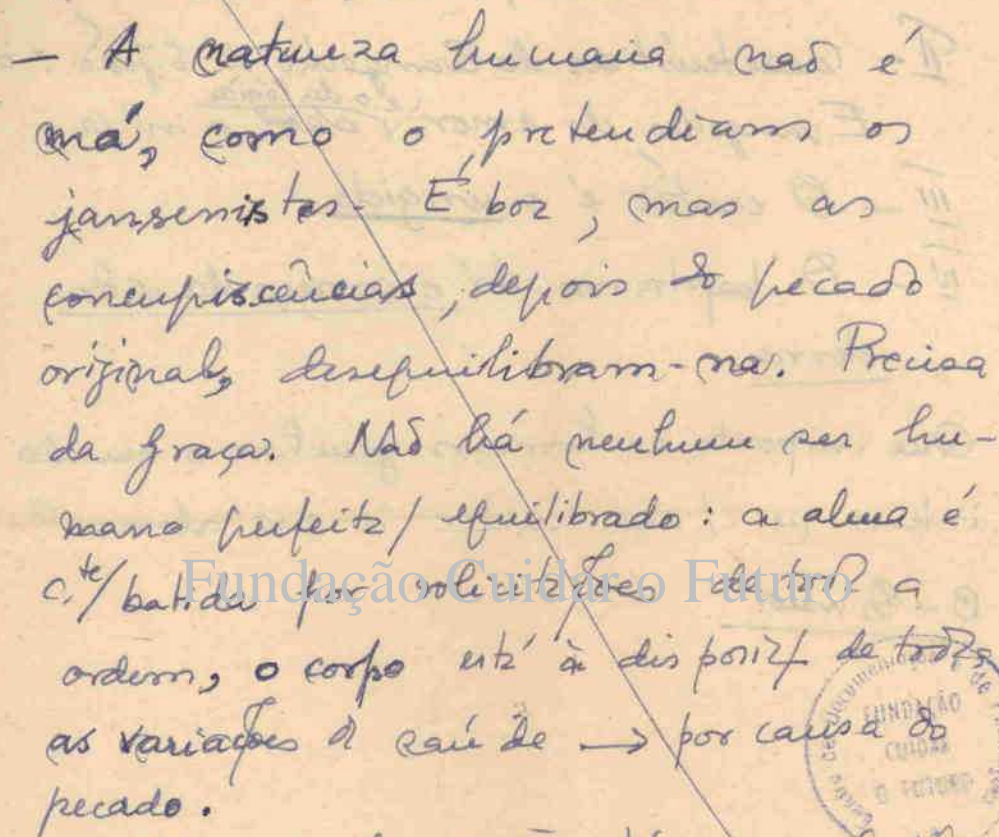 — A natureza humana não é
má, como o pretendiam os
jansenistas. É boa, mas as
concupiscências, depois do pecado
original, desequilibram-na. Precisa
da graça. Não há nenhum ser hu-
mano perfeita/ equilibrado: a alma é
c.te/ batida por solicitações de toda a
ordem, o corpo está à disposiç. de todas
as variações d saúde → por causa do
pecado.
Fundação Cuidar o Futuro
FUNDAÇÃO
CUIDAR
O FUTURO